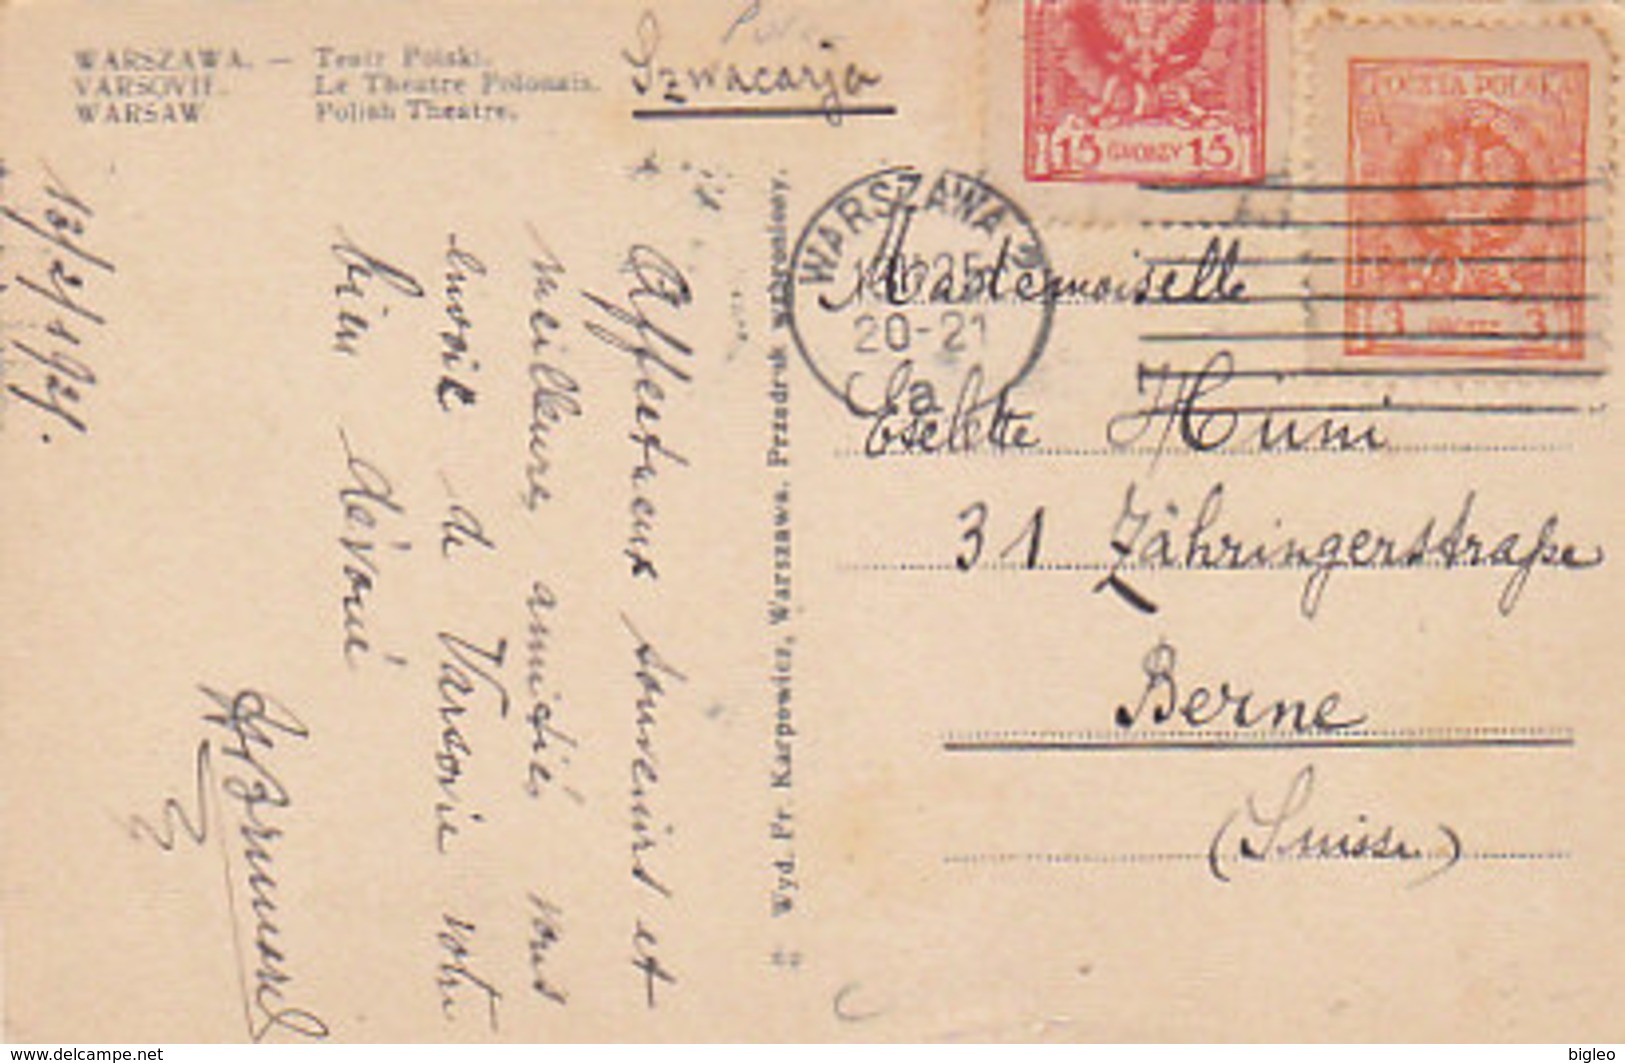 WARSZAWA. — Teatr Polski.
VARSOVIE. Le Theatre Polonais.
WARSAW Polish Theatre.
Szwacarja
15 GROSZY 15
POCZTA POLSKA
3 GROSZE 3
WARSZAWA 2
25
20-21
a
Mademoiselle
Huni
31 Zähringerstraße
Berne
(Suisse)
Wyd. Fr. Karpowicz, Warszawa. Przedruk wzbroniony.
13/2/1925.
Affectueux souvenirs et
meilleures amitiés vous
envoie de Varsovie votre
bien dévoué
www.delcampe.net
bigleo